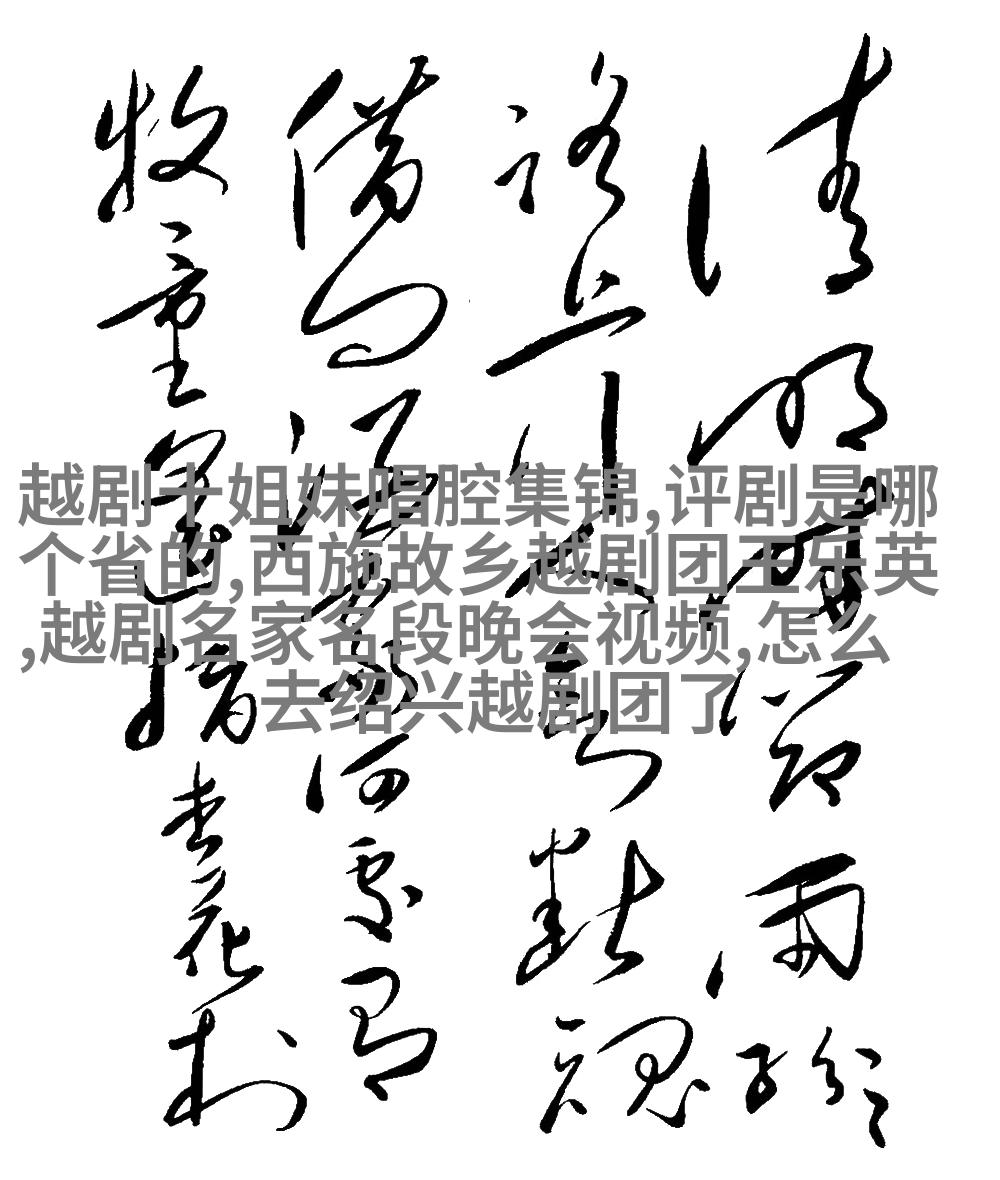 清明時節雨紛々
路上行人欲斷魂
借問酒家何處有
牧童遙指杏花村
越剧十姐妹唱腔集锦,评剧是哪
个省的,西施故乡越剧团王乐英
,越剧名家名段晚会视频,怎么
去绍兴越剧团了